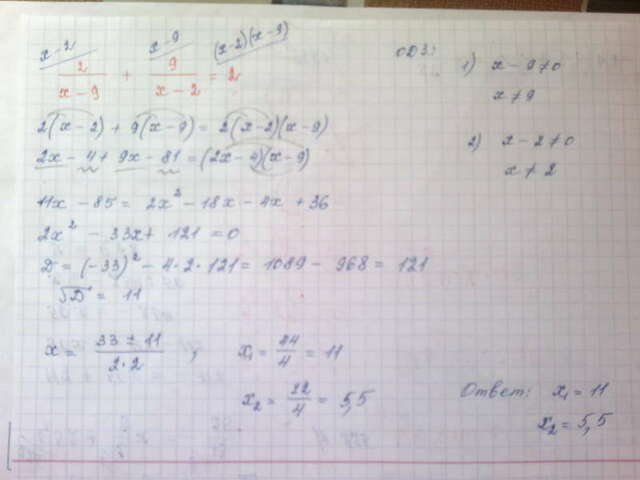 x-2 x-9 (x-2)(x-9)
2/(x-9) + 9/(x-2) = 2
ОДЗ:
1) x-9≠0
x≠9
2) x-2≠0
x≠2
2(x-2) + 9(x-9) = 2(x-2)(x-9)
2x - 4 + 9x - 81 = (2x-4)(x-9)
11x - 85 = 2x² - 18x - 4x + 36
2x² - 33x + 121 = 0
D = (-33)² - 4·2·121 = 1089 - 968 = 121
√D = 11
x = (33 ± 11)/(2·2) ; x₁ = 44/4 = 11
x₂ = 22/4 = 5,5
Ответ: x₁ = 11
x₂ = 5,5